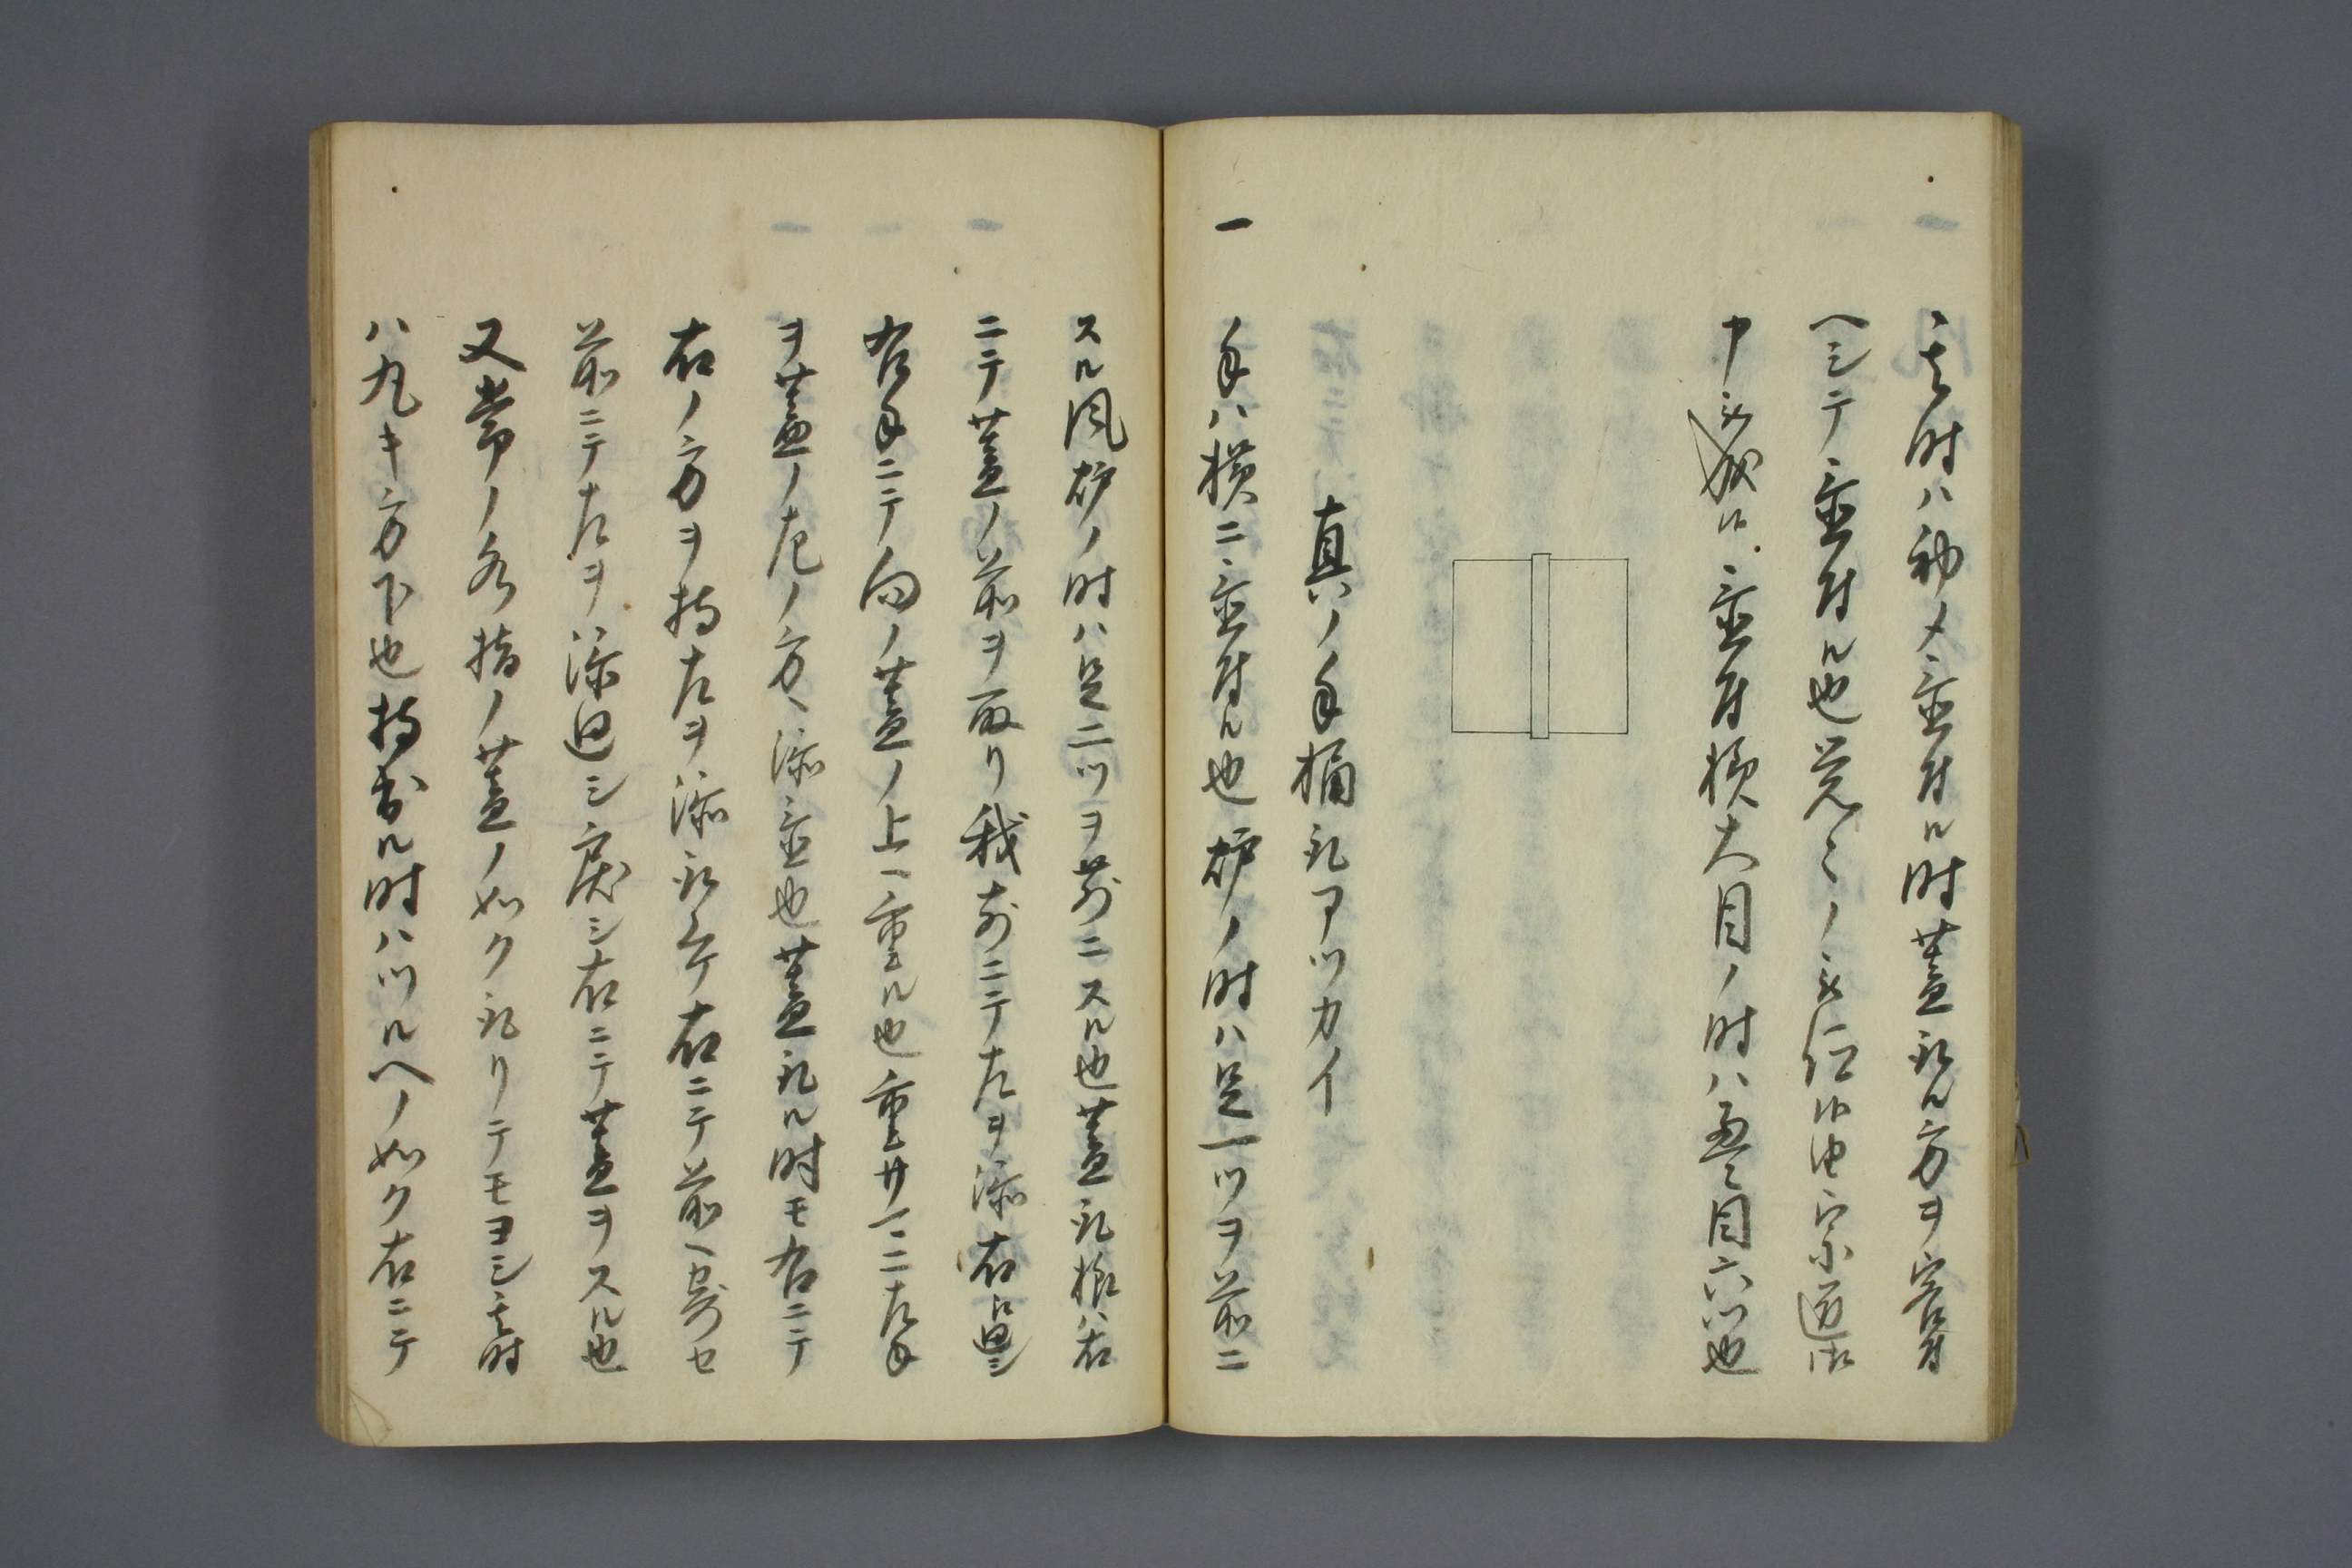 其時ハ初メ置付ル時蓋取ル方ヲ客付
ヘシテ置付ル也覚
申候置付横大目ノ時ハ畳目六ツ也
真ノ手桶取アツカイ
一 手ハ横ニ置付ル也炉ノ時ハ足一ツヲ前ニ
スル風炉ノ時ハ足二ツヲ前ニスル也蓋取様ハ右
ニテ蓋ノ前ヲ取リ我前ニテ左ヲ添右
右手ニテ向ノ蓋ノ上ヘ重ル也重サマニ左手
ヲ蓋ノ左ノ方ヘ添置也蓋取ル時モ右ニテ
右ノ方ヲ持左ヲ添取ケ右ニテ前ヘ寄セ
前ニテ左ヲ添廻シ戻シ右ニテ蓋ヲスル也
又常ノ水指ノ蓋ノ如ク取リテモヨシ其時
ハ丸キ方下也持出ル時ハツルヘノ如ク右ニテ